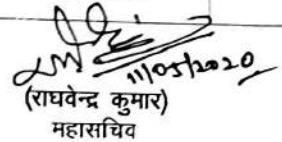 11/05/2020
(राघवेन्द्र कुमार)
महासचिव